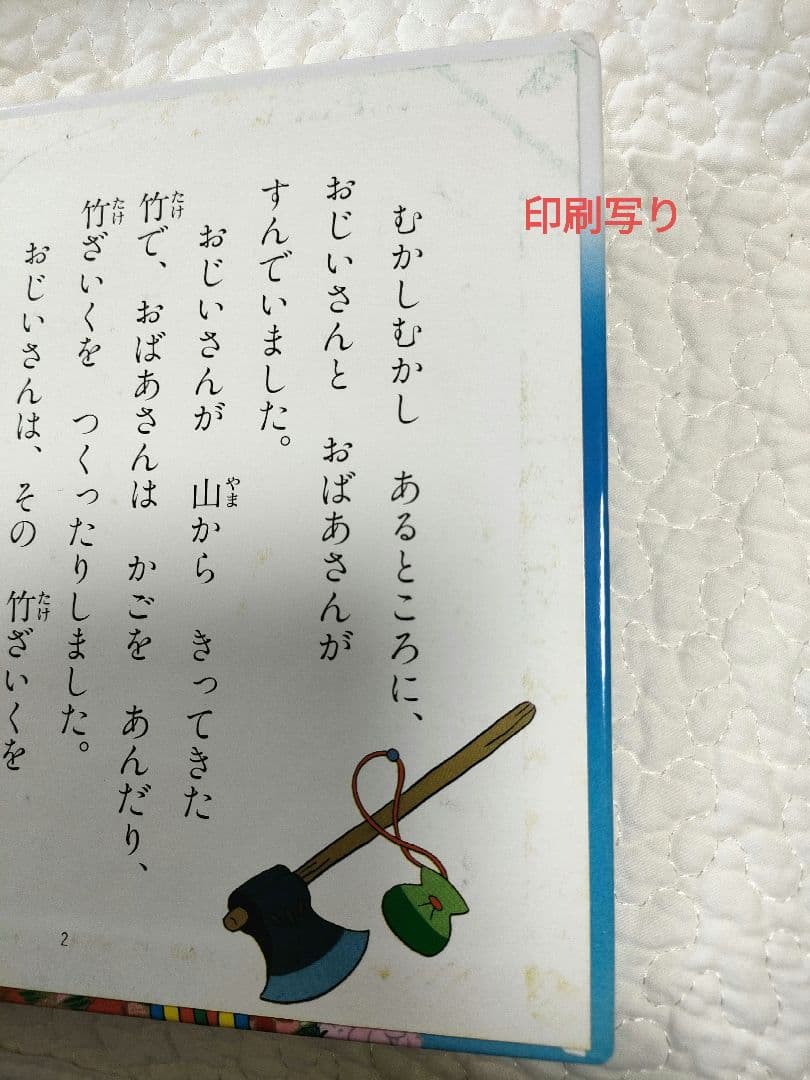 むかしむかし　あるところに、
おじいさんと　おばあさんが
すんでいました。
おじいさんが　山から　きってきた
竹で、おばあさんは　かごを　あんだり、
竹ざいくを　つくったりしました。
おじいさんは、その　竹ざいくを
2
印刷写り